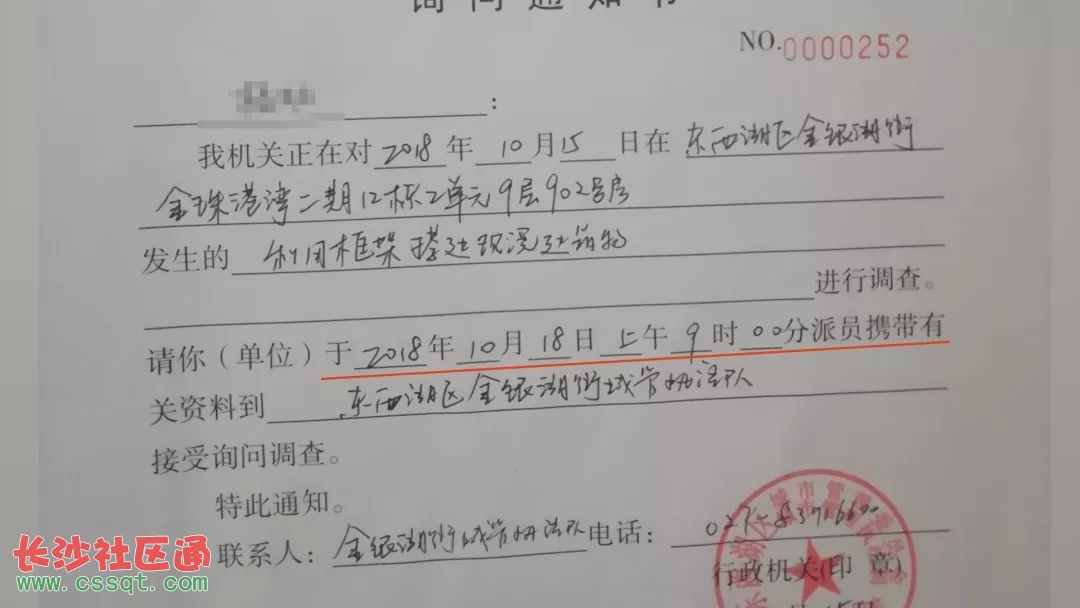 询问通知书
NO.0000252
：
我机关正在对 2018 年 10 月 15 日在 东西湖区金银湖街
金珠港湾二期12栋2单元9层902号房
发生的 利用框架搭建现浇建筑物
进行调查。
请你（单位）于 2018 年 10 月 18 日 上午 9 时 00 分派员携带有
关资料到 东西湖区金银湖街城管执法队
接受询问调查。
特此通知。
联系人：金银湖街城管执法队 电话：027-
行政机关(印 章)
长沙社区通
www.cssqt.com